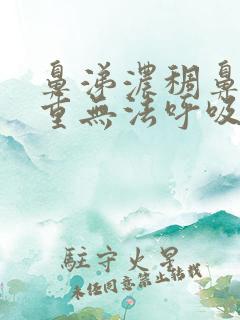 鼻涕濃稠鼻
重無法呼吸
駐守火星
未經同意禁止轉載